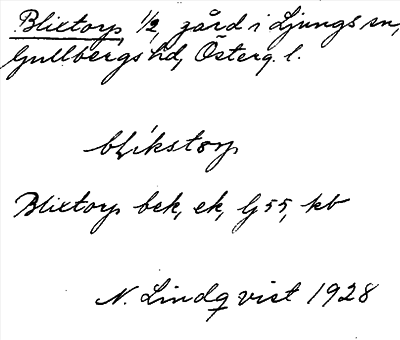 Blixtorp, 1/2, gård i Ljungs sn,
Gullbergs hd, Österg. l.
blikstørp
Blixtorp bek, ek, lj 55, kb
N. Lindqvist 1928